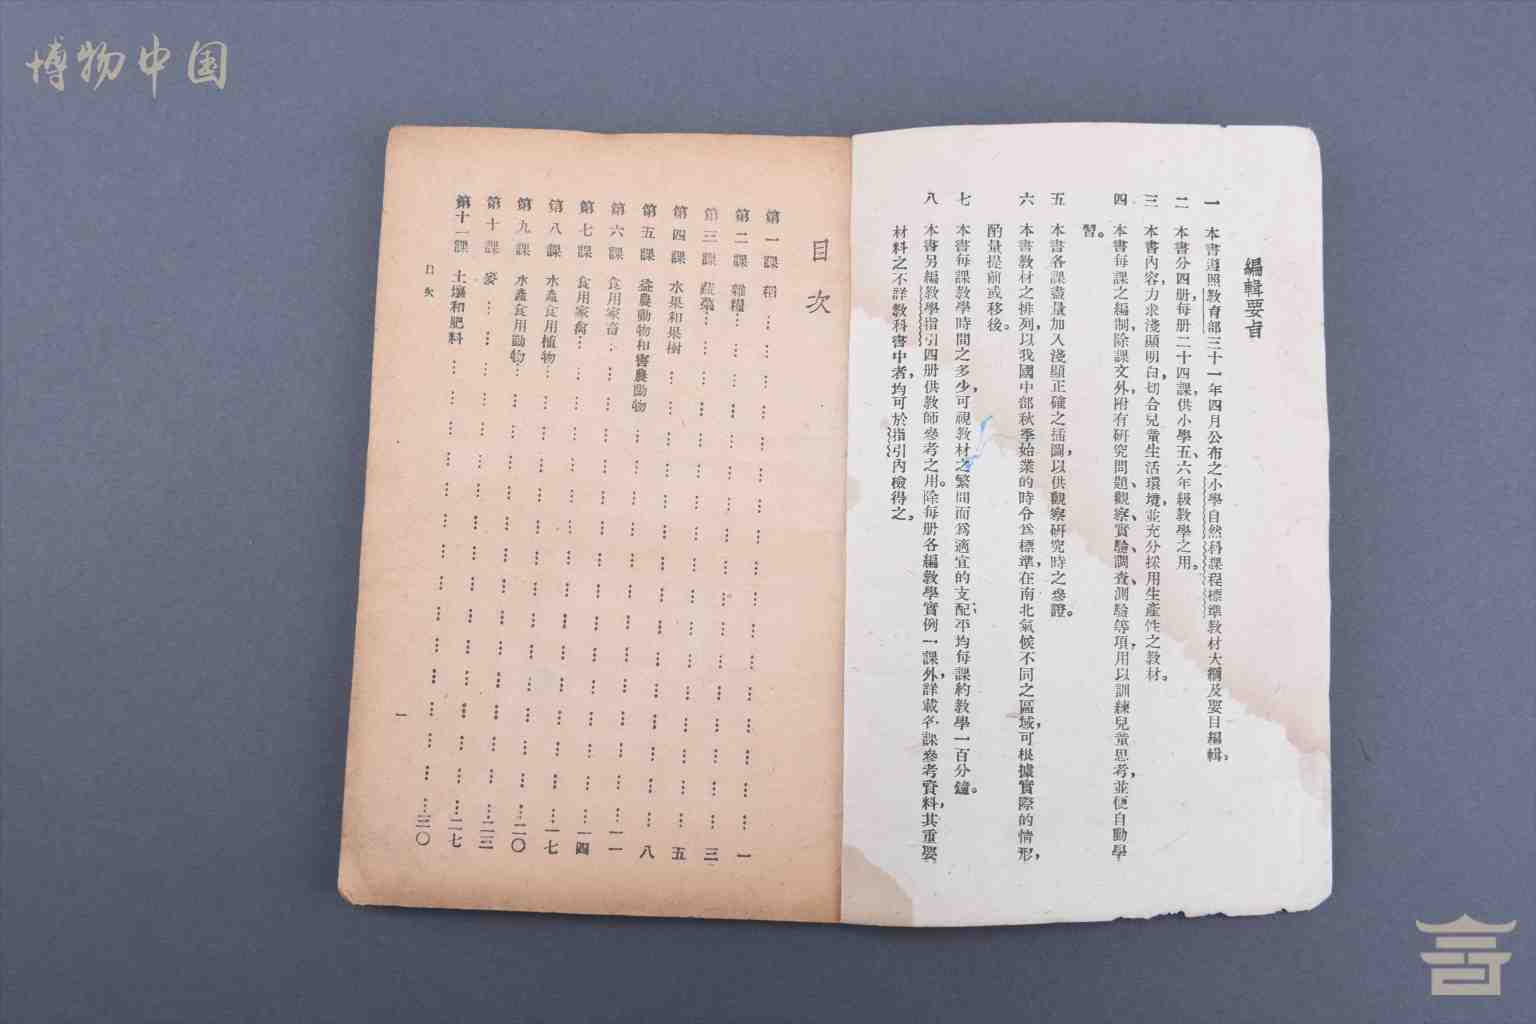 博物中国
編輯要旨
一 本書遵照教育部三十一年四月公布之小學自然科課程標準教材大綱及要目編輯。
二 本書分四册，每册二十四課，供小學五、六年級教學之用。
三 本書內容，力求淺顯明白，切合兒童生活環境，並充分採用生產性之教材。
四 本書每課之編制，除課文外，附有研究問題、觀察、實驗、調查、測驗等項，用以訓練兒童思考，並便自動學
習。
五 本書各課盡量加入淺顯正確之插圖，以供觀察研究時之參證。
六 本書教材之排列，以我國中部秋季始業的時令爲標準，在南北氣候不同之區域，可根據實際的情形，
酌量提前或移後。
七 本書每課教學時間之多少，可視教材之繁簡而爲適宜的支配；平均每課約教學一百分鐘。
八 本書另編教學指引四册，供教師參考之用。除每册各編教學實例一課外，詳載各課參考資料，其重要
材料之不詳教科書中者，均可於指引內檢得之。
目次
第一課 稻……一
第二課 雜糧……三
第三課 蔬菜……五
第四課 水果和果樹……八
第五課 益農動物和害農動物……一一
第六課 食用家畜……一四
第七課 食用家禽……一七
第八課 水產食用植物……二〇
第九課 水產食用動物……二三
第十課 麥……二七
第十一課 土壤和肥料……三〇
目次
一